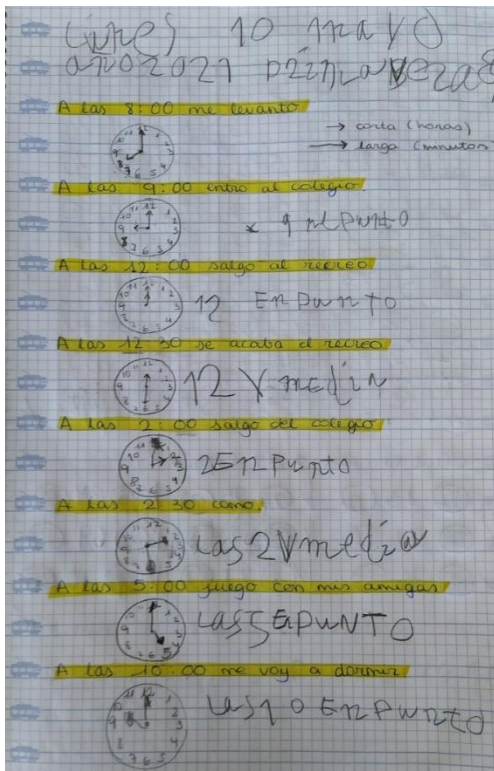 lunes 10 mayo
año2021 primavera
A las 8:00 me levanto
→ corta (horas)
→ larga (minutos
A las 9:00 entro al colegio.
9 en punto
A las 12:00 salgo al recreo
12 En Punto
A las 12:30 se acaba el recreo
12 Y media
A las 2:00 salgo del colegio
2 En Punto
A las 2:30 como.
Las 2 Y media
A las 5:00 juego con mis amigas
Las 5 En PUNTO
A las 10:00 me voy a dormir
Las 10 En Punto